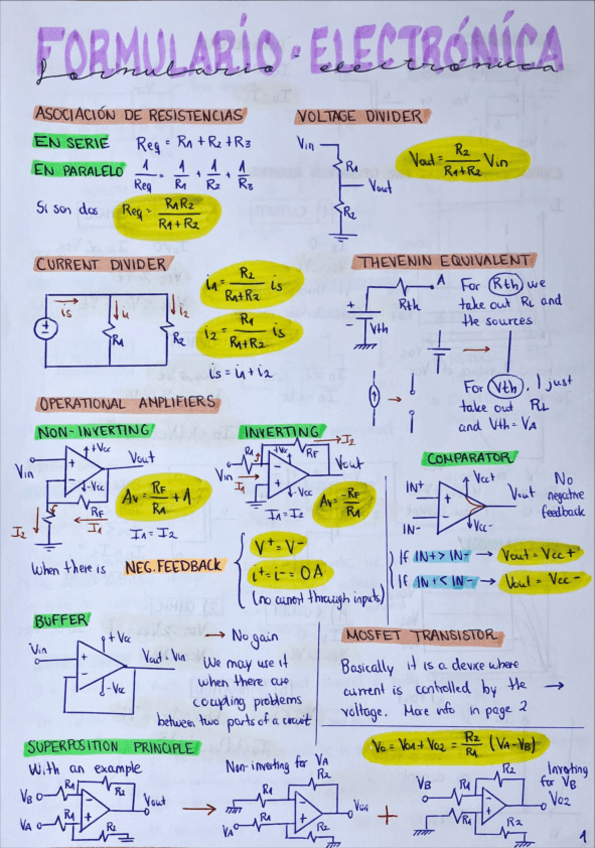 FORMULARÍO · ELECTRÓNÍCA
formulario electrónica
ASOCIACIÓN DE RESISTENCIAS
EN SERIE Req = R1 + R2 + R3
EN PARALELO 1/Req = 1/R1 + 1/R2 + 1/R3
Si son dos Req = R1R2/R1+R2
VOLTAGE DIVIDER
Vin
R1
Vout
R2
Vout = R2/R1+R2 Vin
CURRENT DIVIDER
is
i1
i2
R1
R2
i1 = R2/R1+R2 is
i2 = R1/R1+R2 is
is = i1 + i2
THEVENIN EQUIVALENT
A
Rth
+
-
Vth
For Rth we
take out RL and
the sources
For Vth, I just
take out RL
and Vth = VA
OPERATIONAL AMPLIFIERS
NON-INVERTING
+Vcc
Vin
Vout
-Vcc
RF
I1
I2
Av = RF/R1 + 1
I1 = I2
INVERTING
I2
R1
RF
+Vcc
Vin
Vout
I1
-Vcc
I1 = I2
Av = -RF/R1
COMPARATOR
Vcc+
IN+
IN-
Vout
Vcc-
No
negative
feedback
If IN+ > IN- → Vout = Vcc+
If IN+ < IN- → Vout = Vcc-
When there is NEG. FEEDBACK
V+ = V-
i+ = i- = 0A
(no current through inputs)
BUFFER
+Vcc
Vin
Vout = Vin
-Vcc
→ No gain
We may use it
when there are
coupling problems
between two parts of a circuit
MOSFET TRANSISTOR
Basically it is a device where
current is controlled by the →
voltage. More info in page 2
SUPERPOSITION PRINCIPLE
With an example
VB
R1
R2
VA
R1
R2
Vout
Non-inverting for VA
R2
R1
VA
R1
R2
VO1
+
Vo = Vo1 + Vo2 = R2/R1 (VA - VB)
VB
R1
R2
R1
R2
VO2
Inverting
for VB
1